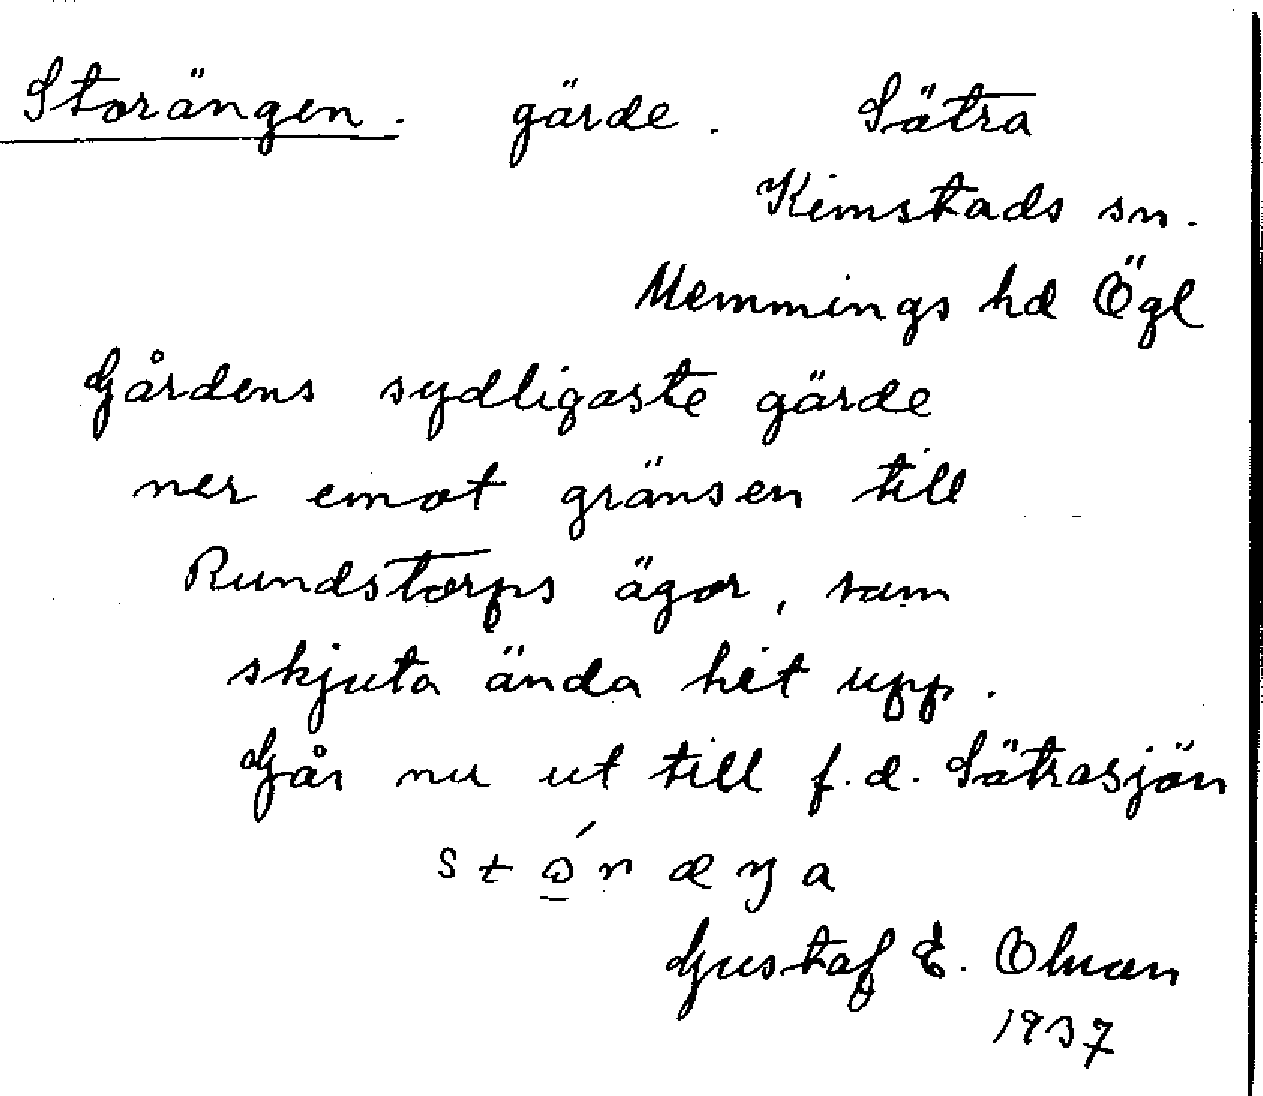 Storängen. gärde. Sätra
Kimstads sn.
Memmings hd Ögl
Gårdens sydligaste gärde
ner emot gränsen till
Rundstorps ägor, som
skjuta ända hit upp.
Går nu ut till f.d. Sätrasjön
Gustaf E. Olson
1937